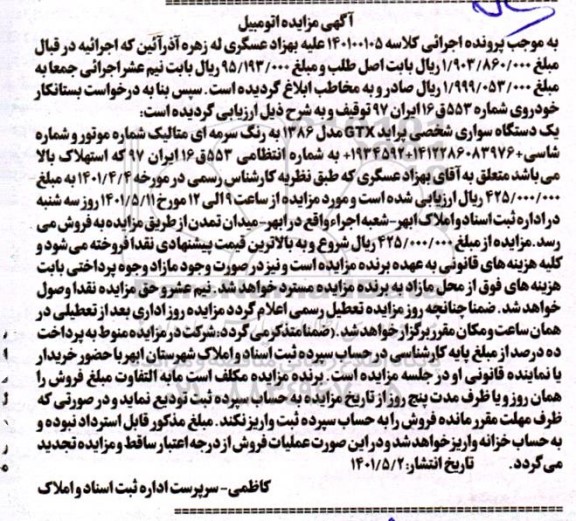 آگهی مزایده اتومبیل
به موجب پرونده اجرائی کلاسه ۱۴۰۱۰۰۱۰۵ علیه بهزاد عسگری له زهره آذرآئین که اجرائیه در قبال
مبلغ ۱/۹۰۳/۸۶۰/۰۰۰ ریال بابت اصل طلب و مبلغ ۹۵/۱۹۳/۰۰۰ ریال بابت نیم عشر اجرائی جمعا به
مبلغ ۱/۹۹۹/۰۵۳/۰۰۰ ریال صادر و به مخاطب ابلاغ گردیده است. سپس بنا به درخواست بستانکار
خودروی شماره ۵۵۳ق۱۶ ایران ۹۷ توقیف و به شرح ذیل ارزیابی گردیده است:
یک دستگاه سواری شخصی پراید GTX مدل ۱۳۸۶ به رنگ سرمه ای متالیک شماره موتور و شماره
شاسی+۱۹۳۴۵۹۲+۱۴۱۲۲۸۶۰۸۳۹۷۶+ به شماره انتظامی ۵۵۳ق۱۶ ایران ۹۷ که استهلاک بالا
می باشد متعلق به آقای بهزاد عسگری که طبق نظریه کارشناس رسمی در مورخه ۱۴۰۱/۴/۴ به مبلغ
۴۲۵/۰۰۰/۰۰۰ ریال ارزیابی شده است و مورد مزایده از ساعت ۹ الی ۱۲ مورخ ۱۴۰۱/۵/۱۱ روز سه شنبه
در اداره ثبت اسناد و املاک ابهر-شعبه اجراء واقع در ابهر-میدان تمدن از طریق مزایده به فروش می
رسد. مزایده از مبلغ ۴۲۵/۰۰۰/۰۰۰ ریال شروع و به بالاترین قیمت پیشنهادی نقدا فروخته می شود و
کلیه هزینه های قانونی به عهده برنده مزایده است و نیز در صورت وجود مازاد وجوه پرداختی بابت
هزینه های فوق از محل مازاد به برنده مزایده مسترد خواهد شد. نیم عشر و حق مزایده نقدا وصول
خواهد شد. ضمنا چنانچه روز مزایده تعطیل رسمی اعلام گردد مزایده روز اداری بعد از تعطیلی در
همان ساعت و مکان مقرر برگزار خواهد شد. (ضمنا متذکر می گردد: شرکت در مزایده منوط به پرداخت
ده درصد از مبلغ پایه کارشناسی در حساب سپرده ثبت اسناد و املاک شهرستان ابهر با حضور خریدار
یا نماینده قانونی او در جلسه مزایده است. برنده مزایده مکلف است مابه التفاوت مبلغ فروش را
همان روز و یا ظرف مدت پنج روز از تاریخ مزایده به حساب سپرده ثبت تودیع نماید و در صورتی که
ظرف مهلت مقرر مانده فروش را به حساب سپرده ثبت واریز نکند. مبلغ مذکور قابل استرداد نبوده و
به حساب خزانه واریز خواهد شد و در این صورت عملیات فروش از درجه اعتبار ساقط و مزایده تجدید
می گردد. تاریخ انتشار: ۱۴۰۱/۵/۲
کاظمی-سرپرست اداره ثبت اسناد و املاک